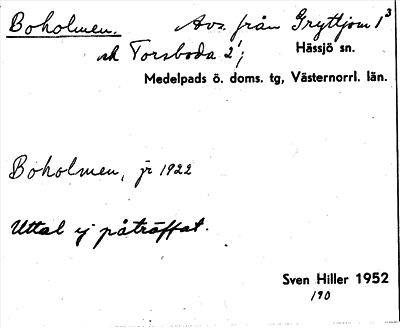 Boholmen. Avs. från Gryttjom 1³
och Torsboda 2¹; Hässjö sn.
Medelpads ö. doms. tg, Västernorrl. län.
Boholmen, jr 1922
Uttal ej påträffat.
Sven Hiller 1952
190